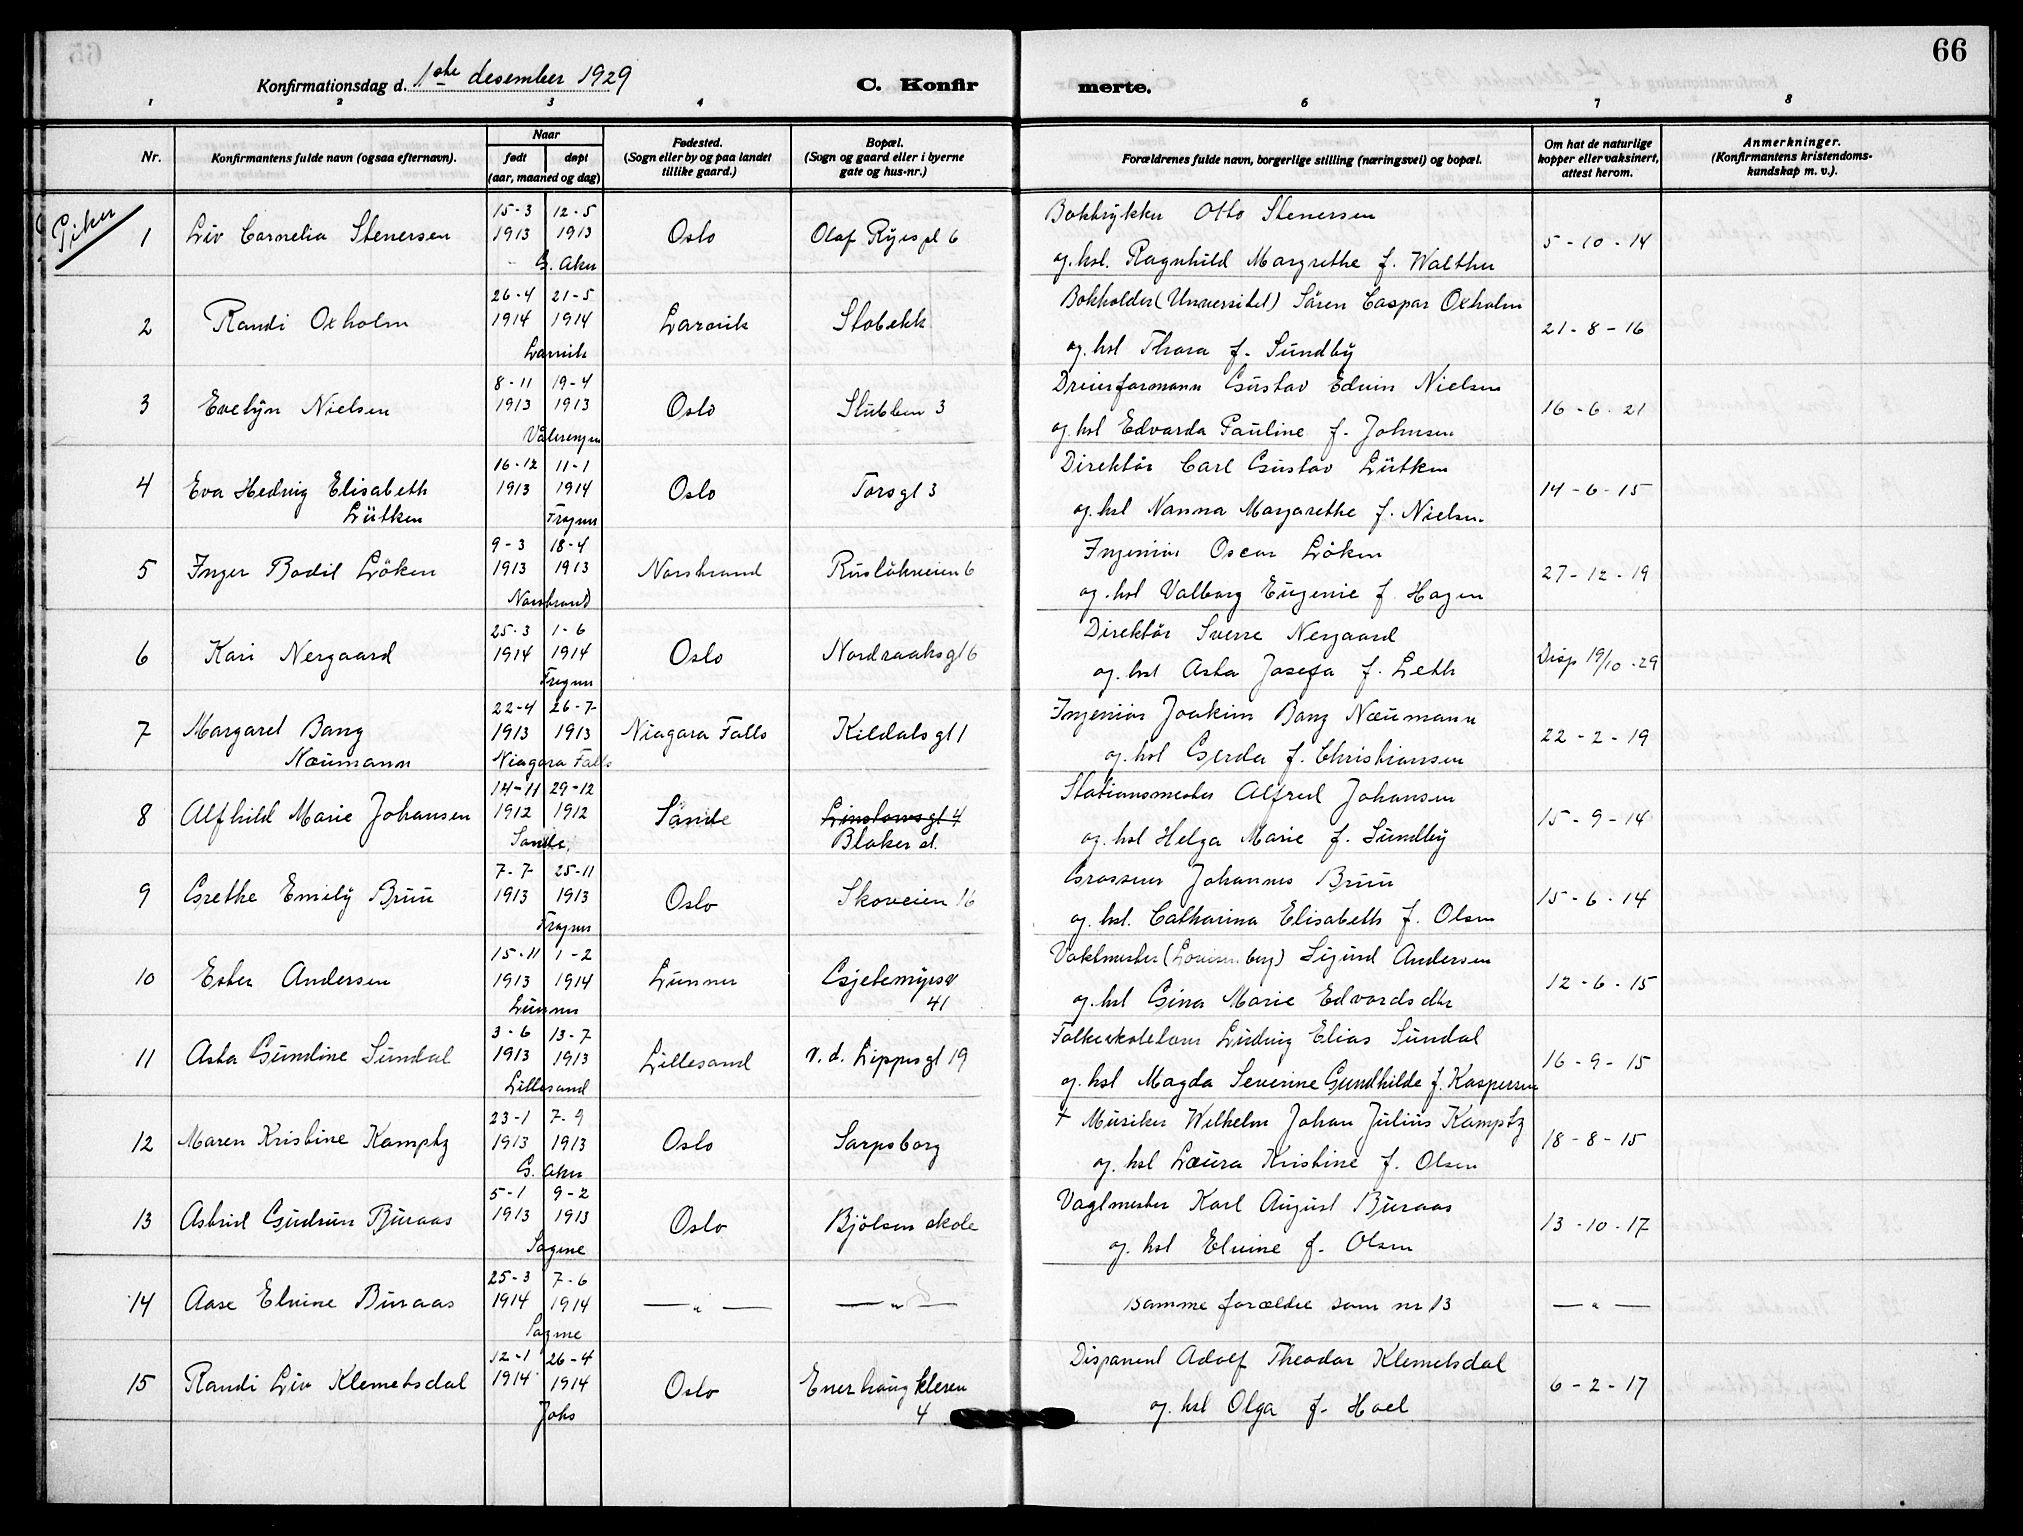 66
Konfirmationsdag d. 1ste desember 1929
C. Konfirmerte.
1 2 3 4 5 6 7 8
Nr.
Konfirmantens fulde navn (ogsaa efternavn).
Naar
født døpt
(aar, maaned og dag)
Fødested.
(Sogn eller by og paa landet
tillike gaard.)
Bopæl.
(Sogn og gaard eller i byerne
gate og hus-nr.)
Forældrenes fulde navn, borgerlige stilling (næringsvei) og bopæl.
Om hat de naturlige
kopper eller vaksinert,
attest herom.
Anmerkninger.
(Konfirmantens kristendoms-
kundskap m. v.).
Piker
15-3 12-5 Boktrykker Otto Stenersen
1 Liv Cornelia Stenersen 1913 1913 Oslo Olaf Ryes pl 6 5-10-14
G. Aker og hst. Ragnhild Margrethe f. Walther
26-4 21-5 Bokholder (Universitet) Sören Caspar Oxholm
2 Randi Oxholm 1914 1914 Larvik Slobekk 21-8-16
Larvik og hst Thora f. Sundby
8-11 19-4 Dreierformann Gustav Edvin Nielsen
3 Evelyn Nielsen 1913 1913 Oslo Stubben 3 16-6-21
Vålerengen og hst Edvarda Pauline f. Johnsen
16-12 11-1 Direktör Carl Gustav Lütken
4 Eva Hedvig Elisabeth 1913 1914 Oslo Torsgt 3 14-6-15
Lütken Frogner og hst Nanna Margarethe f. Nielsen
9-3 18-4 Ingeniör Oscar Löken
5 Inger Bodil Löken 1913 1913 Norstrand Ruslökveien 6 27-12-19
Norstrand og hst Valborg Eugenie f. Hagen
25-3 1-6 Direktör Sverre Nergaard
6 Kari Nergaard 1914 1914 Oslo Nordraaks gt 6 Disp 19/10-29
Frogner og hst Asta Josefa f. Leth
22-4 26-7 Ingeniör Joakim Bang Næumann
7 Margaret Bang 1913 1913 Niagara Falls Kildals gt 1 22-2-19
Næumann Niagara Falls og hst Gerda f. Christiansen
14-11 29-12 Stationsmester Alfred Johansen
8 Alfhild Marie Johansen 1912 1912 Sande Linstows gt 4 15-9-14
Sande Blaker st. og hst Helga Marie f. Sundby
7-7 25-11 Grosserer Johannes Bruu
9 Grethe Emily Bruu 1913 1913 Oslo Skoveien 16 15-6-14
Frogner og hst. Catharina Elisabeth f. Olsen
15-11 1-2 Vaktmester Sigurd Andersen
10 Ester Andersen 1913 1914 Lunner Gjetemyrsv 12-6-15
Lunner 41 og hst Gina Marie Edvardsdtr
3-6 13-7 Folkeskolelærer Ludvig Elias Sundal
11 Asta Gundine Sundal 1913 1913 Lillesand v. d. Lippes gt 19 16-9-15
Lillesand og hst Magda Severine Gundhilde f. Kaspersen
23-1 7-9 + Musiker Wilhelm Johan Julius Kamptz
12 Maren Kristine Kamptz 1913 1913 Oslo Sarpsborg 18-8-15
G. Aker og hst Laura Kristine f. Olsen
5-1 9-2 Vagtmester Karl August Buraas
13 Astrid Gudrun Buraas 1913 1913 Oslo Bjölsen skole 13-10-17
Sagene og hst Elvine f. Olsen
25-3 7-6
14 Aase Elvine Buraas 1914 1914 — " — — " — samme forældre som nr 13 — " —
Sagene
12-1 26-4 Disponent Adolf Theodor Klemetsdal
15 Randi Liv Klemetsdal 1914 1914 Oslo Enerhaugkleven 6-2-17
Johs 4 og hst Olga f. Hoel